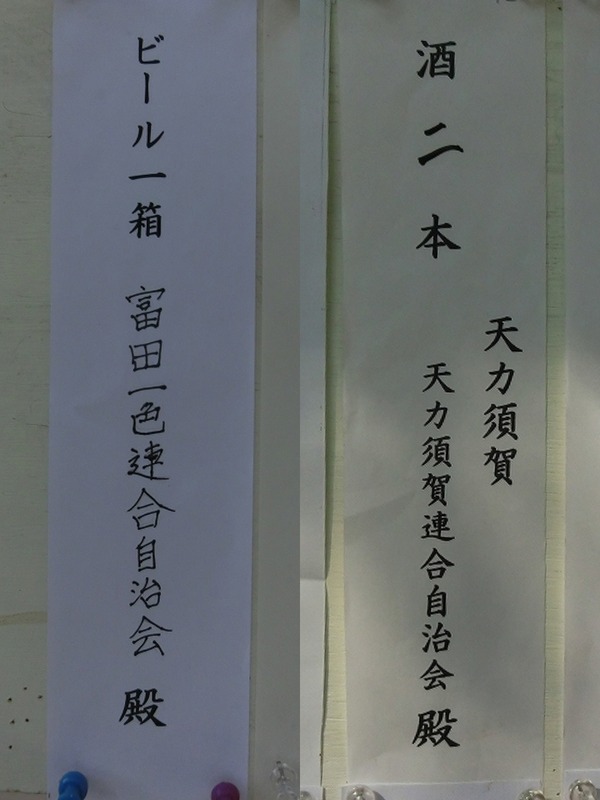 ビール一箱 富田一色連合自治会 殿
酒二本
天カ須賀
天カ須賀連合自治会 殿